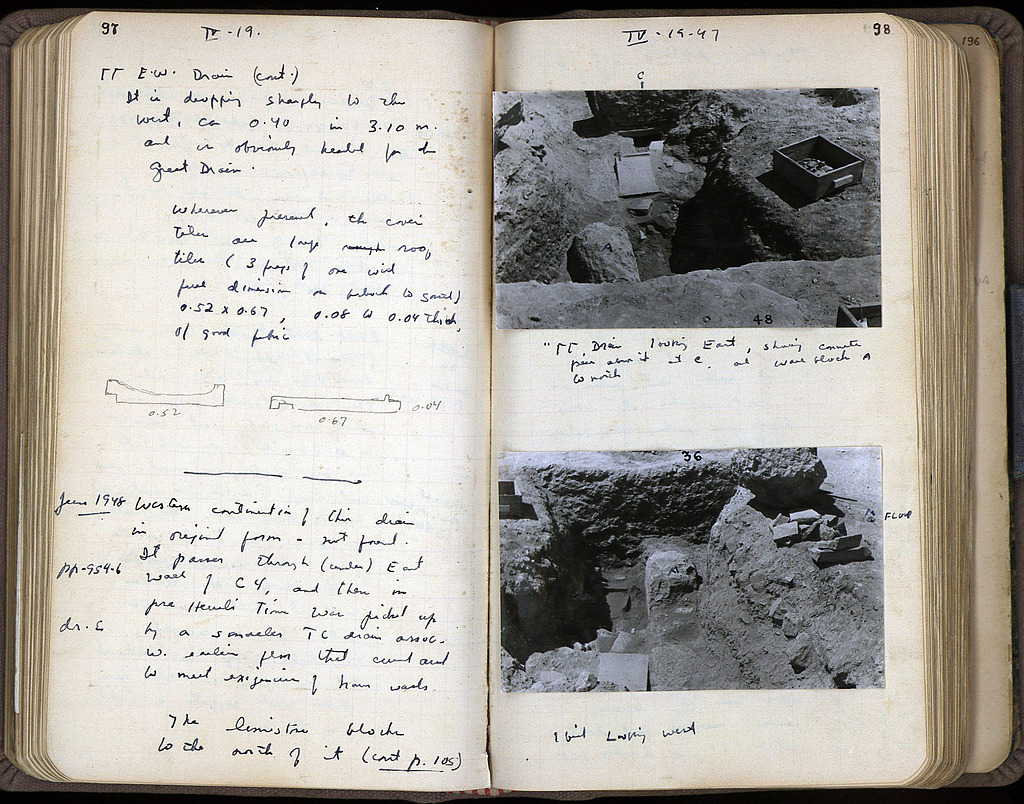 97
IV-19.
ΓΓ E.W. Drain (cont.)
It is dropping sharply to the
west, ca 0.40 in 3.10 m.
and is obviously headed for the
Great Drain.
Wherever present, the cover
tiles are large roof
tiles (3 frags of one with
full dimension
0.52 x 0.67, 0.08 to 0.04 thick,
of good fabric
0.52
0.67
0.04
June 1948 Western continuation of this drain
in original form - not found.
pp-954-6
It passes through (under) East
wall of C 4, and then in
pre Herulian Times was picked up
dr. G
by a smaller TC drain assoc.
w. earlier
to meet exigencies of house walls.
The limestone blocks
to the north of it (cont p. 105)
IV-19-47
98
196
C
A
48
"ΓΓ Drain looking East, showing concrete
pier above it at C, and block A
to north
36
A
FLUR
Ibid Looking west